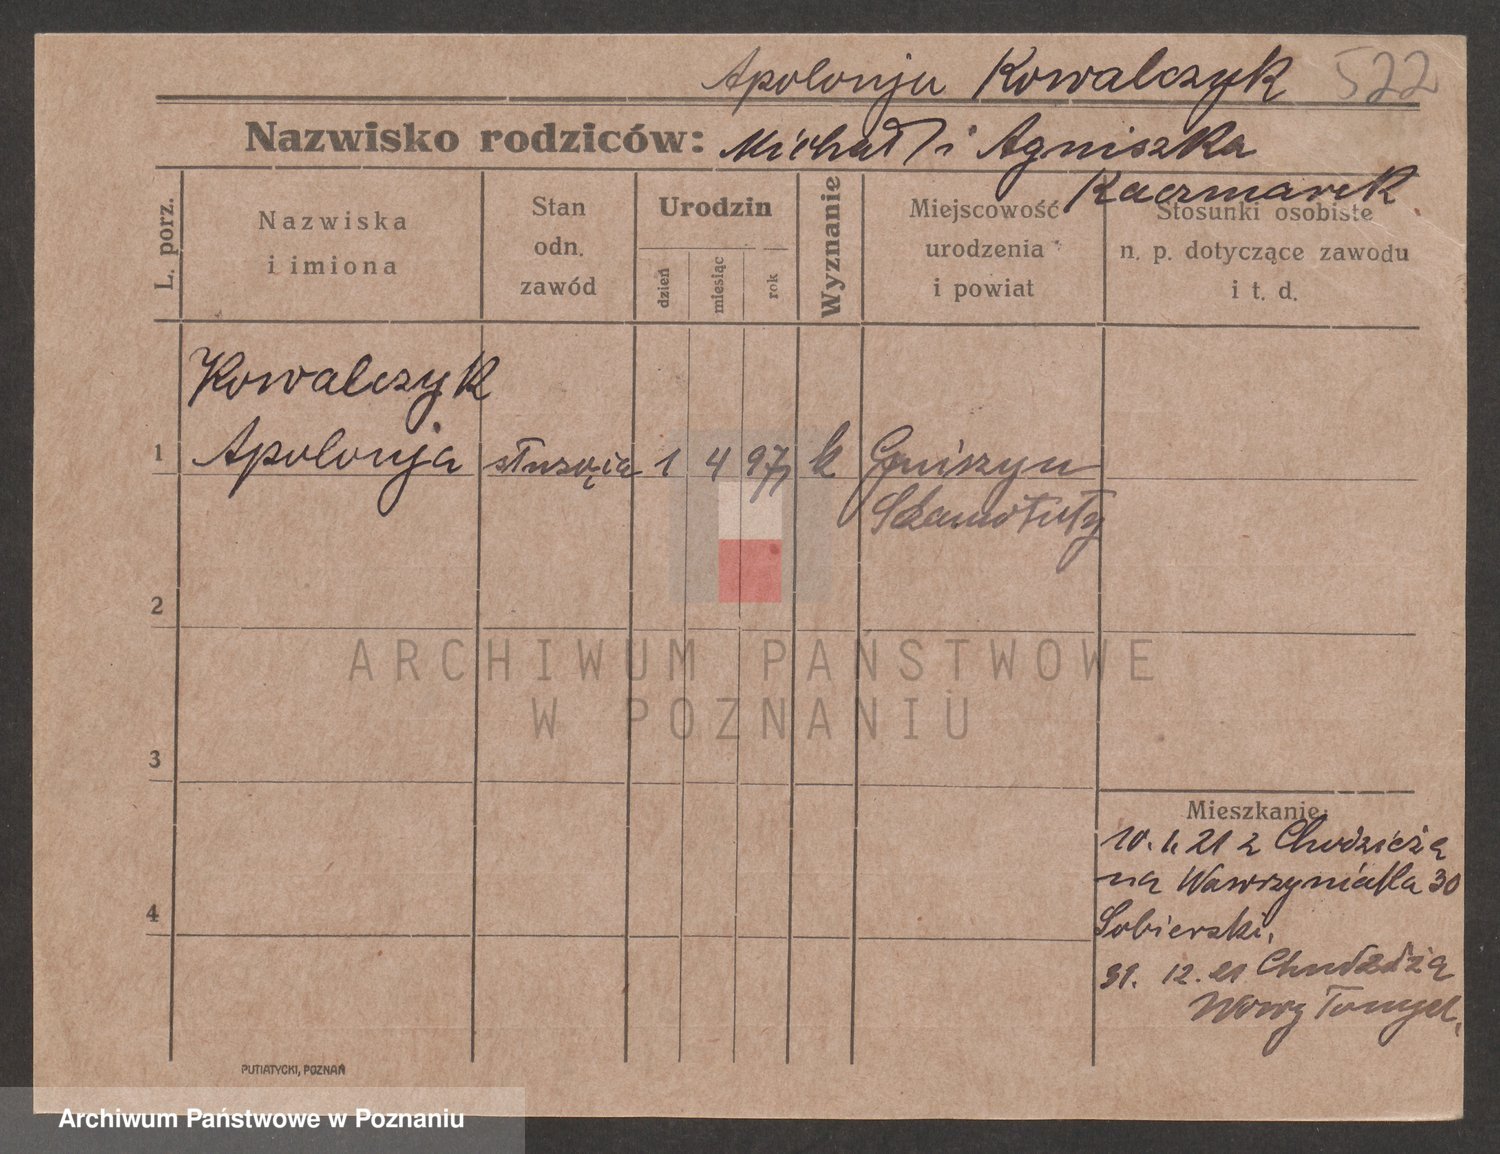 Apolonja Kowalczyk 522
Nazwisko rodziców: Michał i Agniszka
Kaczmarek
L. porz.
Nazwiska
i imiona
Stan
odn.
zawód
Urodzin
dzień
miesiąc
rok
Wyznanie
Miejscowość
urodzenia
i powiat
Stosunki osobiste
n. p. dotyczące zawodu
i t. d.
Kowalczyk
1 Apolonja służąca 1 4 97 k
Szamotuły
2
ARCHIWUM PAŃSTWOWE
W POZNANIU
3
Mieszkanie:
10. 1. 21 z Chodzieża
na Wawrzyniaka 30
4
Sobierski,
31. 12. 21
Nowy Tomyśl,
PUTIATYCKI, POZNAŃ
Archiwum Państwowe w Poznaniu